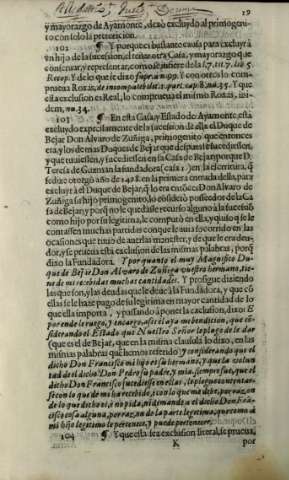 19
y mayorazgo de Ayamonte, dexò excluydo al primogenito con solo la pretericion.
102 ¶ Y porque es bastante causa para excluyr à
vn hijo de la succession, el tener otra Casa, y mayorazgo que
conseruar, y representar, como se infiere de la l. 7. tit. 7. lib. 5.
Recop. Y de lo que se dixo supra n. 99. Y con otros lo comprueua
Roxas, de incompatib. dict. 1. part. cap. 8. nu. 35. Y que
esta exclusion es Real, lo comprueua el mismo Roxas, ibidem,
nu. 34.
103 ¶ En esta Casa, y Estado de Ayamonte, està
excluydo expressamente de la succession de ella el Duque de
Bejar Don Alvaro de Zuñiga, primogenito que entonces
era, y los demas Duques de Bejar que despues le sucediessen,
y que tuuiessen, y sucediessen en la Casa de Bejar; porque D.
Teresa de Guzman la fundadora
fecha otorgò año de 1498. en la primera
excluyr à el Duque de Bejar, q̃ lo era entõces Don Alvaro de
Zuñiga su hijo primogenito, lo considerò posseedor de la Casa
de Bejar, y porq̃ no le quedasse recurso alguno à la succession
como hijo por su legitima, le comparò en ella, y quiso q̃ se le
contassen muchas partidas con que le auia socorrido en las
ocasiones que tuuo de
dor, y se prueua està exclusion de las mismas palabras, porq̃
dixo la Fundadora. Y por quanto el muy Magnifico Duque
de Bejar Don Alvaro de Zuñiga nuestro hermano, tiene
de mi recebidas muchas cantidades. Y prosigue diziendo
las que son, y las deudas que le deue à la Fundadora, y que cõ
ellas se le haze pago de su legitima en mayor cantidad de lo
que ella importa, y passando à poner la exclusion, dixo: E
por ende le ruego, y encargo, assi el aya mi bendicion, que considerando
el Estado que Nuestro Señor le plugo de le dar
(que es el de Bejar, que en la misma clausula lo dixo, en las
mismas palabras que hemos referido) y considerando que el
dicho Don Francisco mi hijo es su hermano, y que la voluntad
del dicho Don Pedro su padre, y mia, siempre fue, que el
dicho Don Francisco sucediesse en ellas, le plega de contentarse
con lo que de mi ha recebido, è con lo que me debe, por razon
de lo que dicho es, è no pida, ni demande à el dicho Don Francisco
cosa alguna, por razon de la parte legitima, que como à
mi hijo legitimo le pertenece, y puede pertenecer.
104 ¶ Y que esta sea exclusion literal, se prueua,
K por